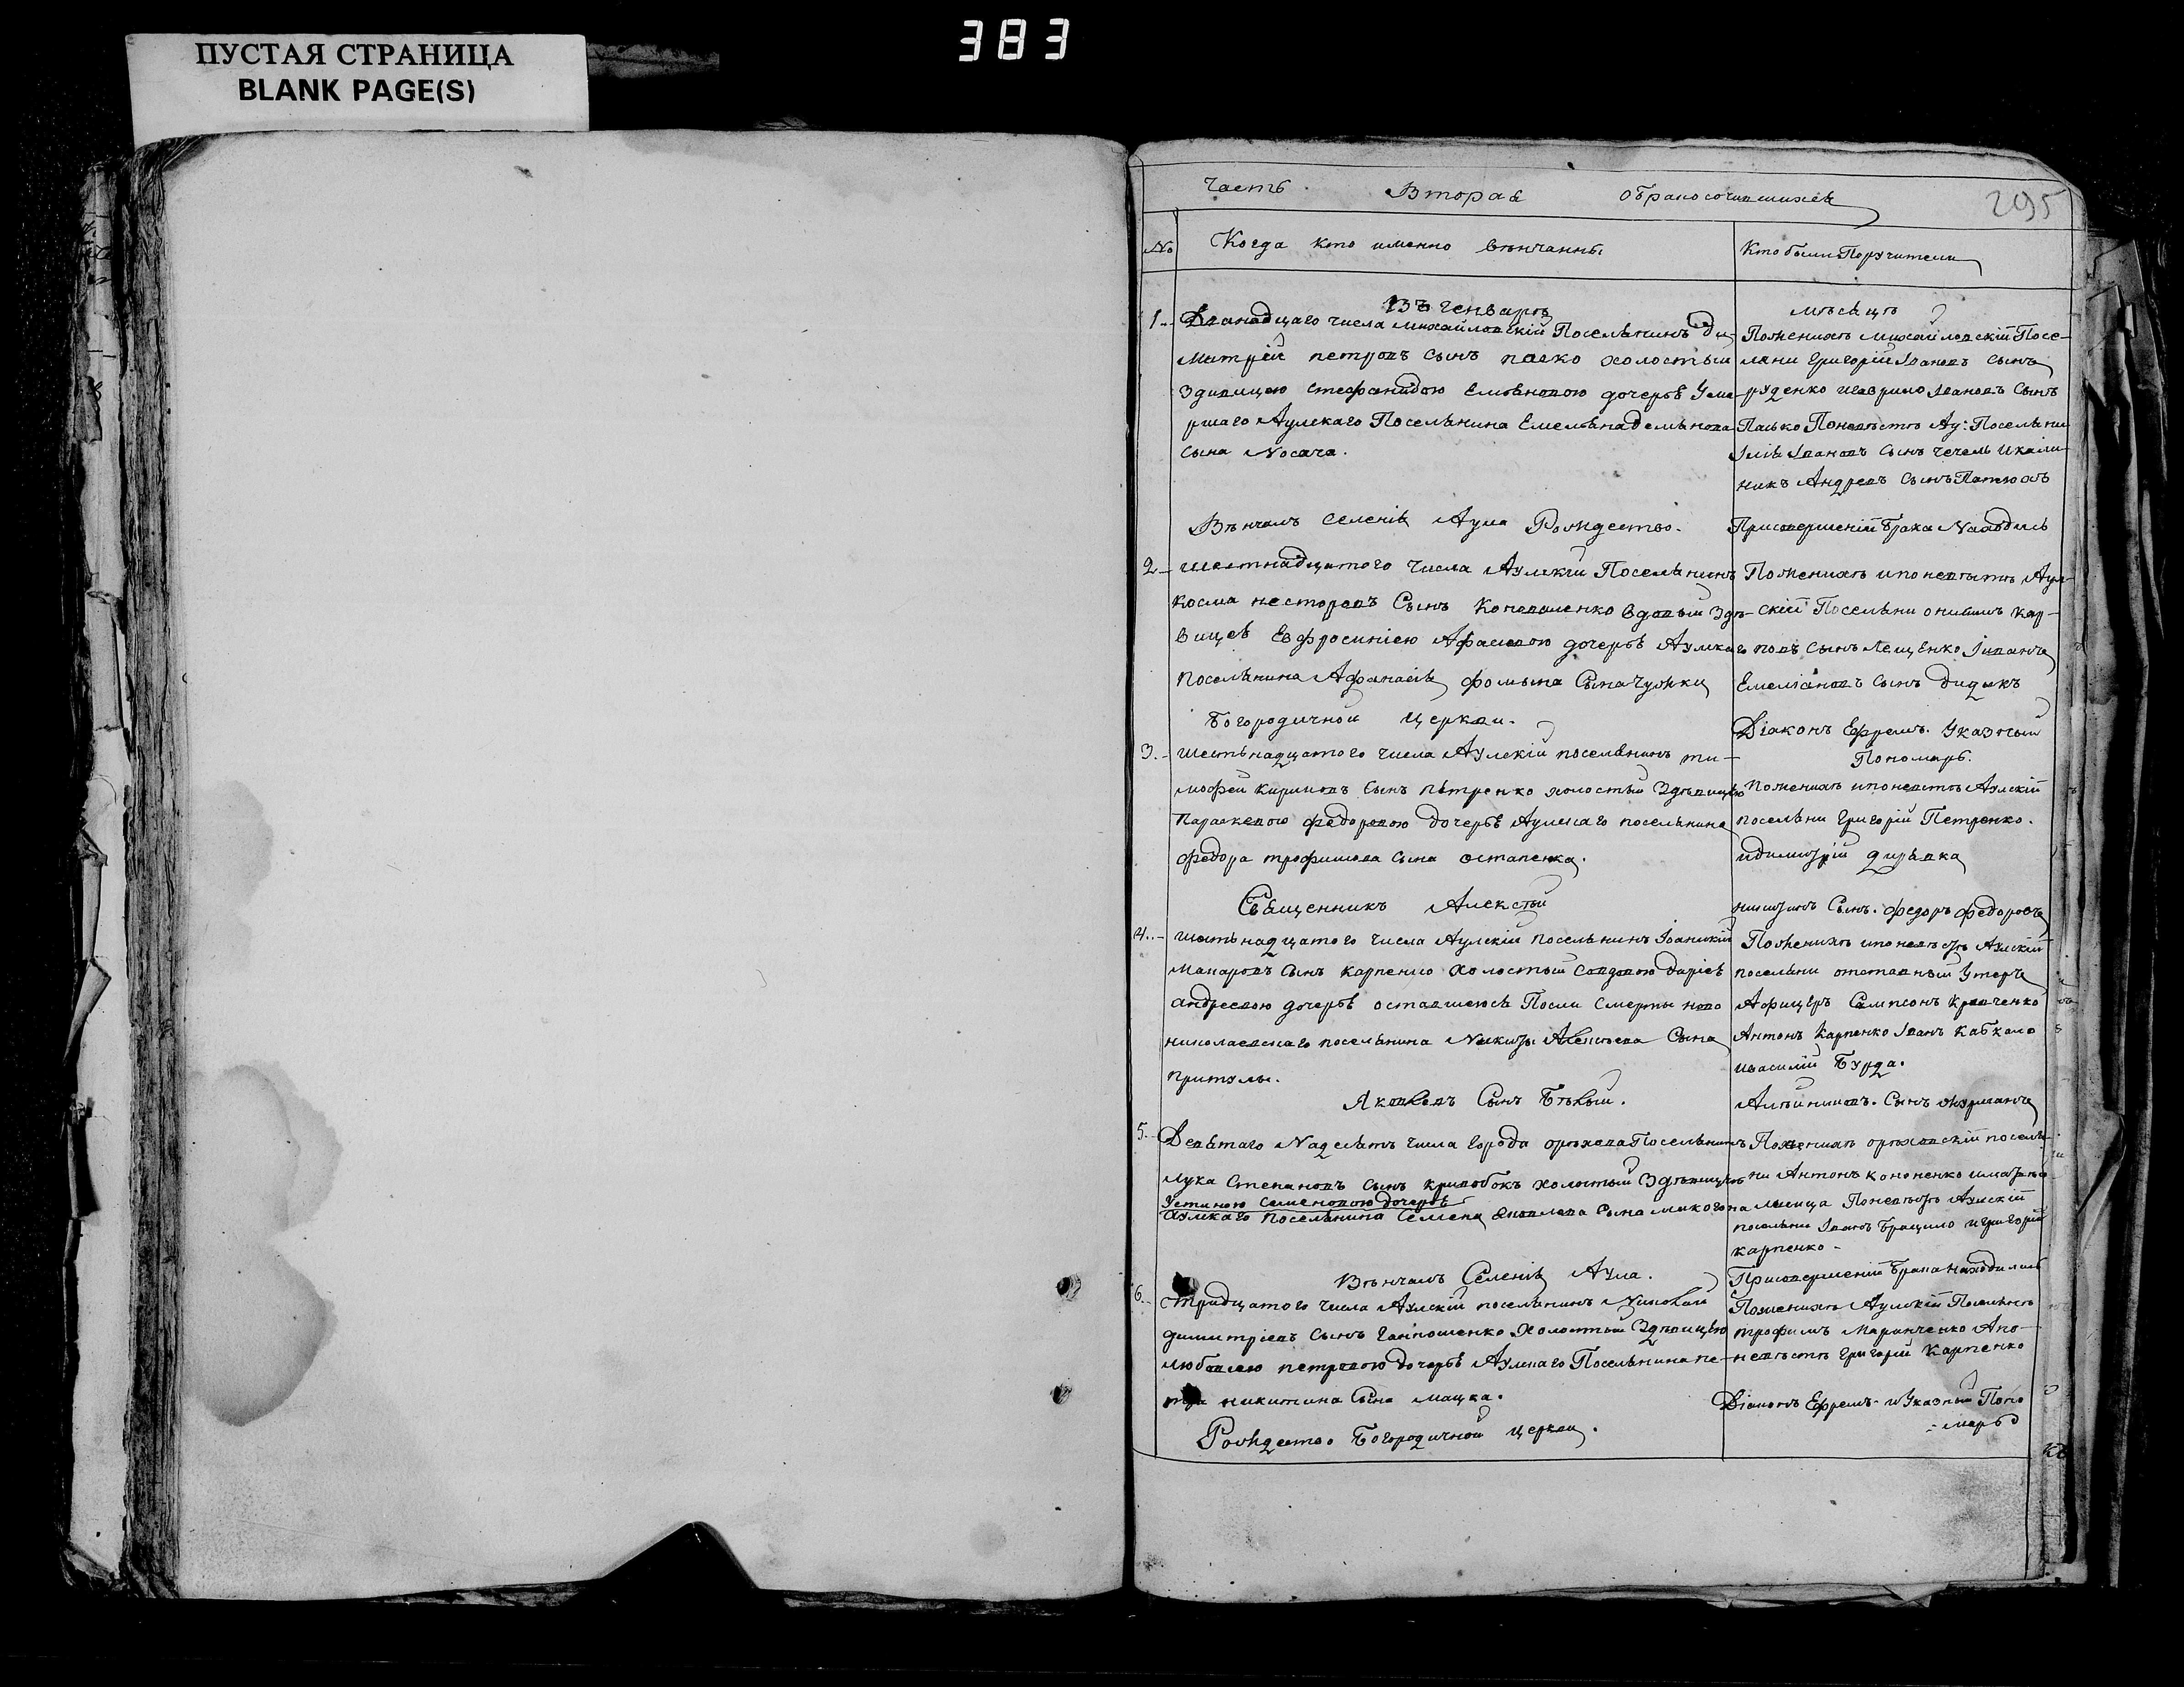 383
ПУСТАЯ СТРАНИЦА
BLANK PAGE(S)
Часть Вторая о бракосочившихся
295
№ Когда кто именно вѣнчанны Кто были Поручители
Въ генварѣ мѣсяцѣ
1.. Дванадцаго числа михайловскій Поселянинъ ди-
митрій петровъ сынъ паско холостый
здивицею стефанидою Емеяновою дочерью Уме-
ршаго Аулскаго Поселянина Емеляна демянова
сына Носача.
Поженихѣ михайловскій Посе-
ляни григорій Ивановъ сынъ
руденко игаврило Ивановъ Сынъ
Пасько Поневѣстѣ Ау: Поселяни
Ілія Ивановъ сынъ чечель икали-
никъ Андреевъ сынъ
Вѣнчалъ селенія Аула Рождество. Присовершеніи Брака Находилъ
2 шестнадцатого числа Аулскій Поселянинъ
косма несторовъ Сынъ Коноваленко вдовый здѣ-
вицею Евфросиніею дочерью Аулскаго
поселянина Афанасія фомына Сына Чужки
Поженихѣ ипоневѣстѣ Аул-
скій Поселяни онисимъ кар-
повъ сынъ Лещенко Іиванъ
Емеліановъ сынъ дидыкъ
Богородичной церкви. Діаконъ Ефремъ. Указный
Пономарь.
3.- шестьнадцатого числа Аулскій поселянинъ ти-
мофей кириловъ сынъ пѣтренко холостый здѣвицею
параскевою федоровою дочерью Аулскаго поселянина
федора трофимова сына остапенка.
поженихѣ ипоневѣстѣ Аулскій
поселяни григорій Петренко.
идимитрій дирывка
Священникъ Алексѣй Сынъ. федоръ федоровъ
4..- шестьнадцатого числа Аулскій поселянинъ Іоаникій
Макаровъ сынъ карпенко холостый совдовою даріею
андреевою дочерью оставшеюся Посли смерты ново
николаевскаго поселянина Никиты Алексѣева Сына
притулы.
Поженихѣ ипоневѣстѣ Аулскій
поселяни отставный Унтеръ
Афицеръ Сампсонъ кравченко
Антонъ карпенко Іванъ кабкало
ивасилій Бурда.
Яковлевъ Сынъ Бѣлый. Сынъ
5.. Девятаго Надесятъ числа города орѣхова Поселянинъ
лука степановъ сынъ кривобокъ холостый здѣвицею
Устиною семеновою дочерью
аулскаго поселянина семена яковлева сына
Поженихѣ орѣховскій поселя-
ни Антонъ кононенко
Поневѣстѣ Аулскій
поселяни Іванъ Брацило игригорій
карпенко -
Вѣнчалъ Селенія Аула. Присовершеніи Брака находились
6.. тридцатого числа Аулскій поселянинъ Николай
димитріевъ сынъ холостый здѣвицею
любовлею петровою дочерью Аулскаго Поселянина пе-
тра никитина Сына мацка.
Поженихѣ Аулскій Поселянъ
трофимъ Маринченко Апо-
невѣстѣ григорій карпенко
Рождество Богородичной церкви. Діаконъ Ефремъ и Указный Поно-
марь